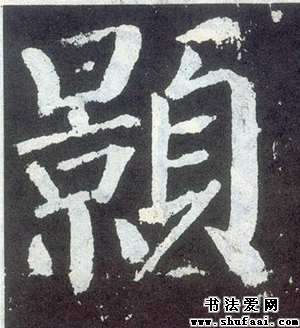 顥
书法爱网
www.shufaai.com